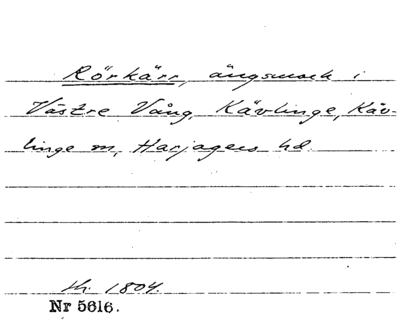 Rörkärr, ängsmark i
Västre Vång, Kävlinge, Käv-
linge sn, Harjagers hd.
sk. 1804.
Nr 5616.